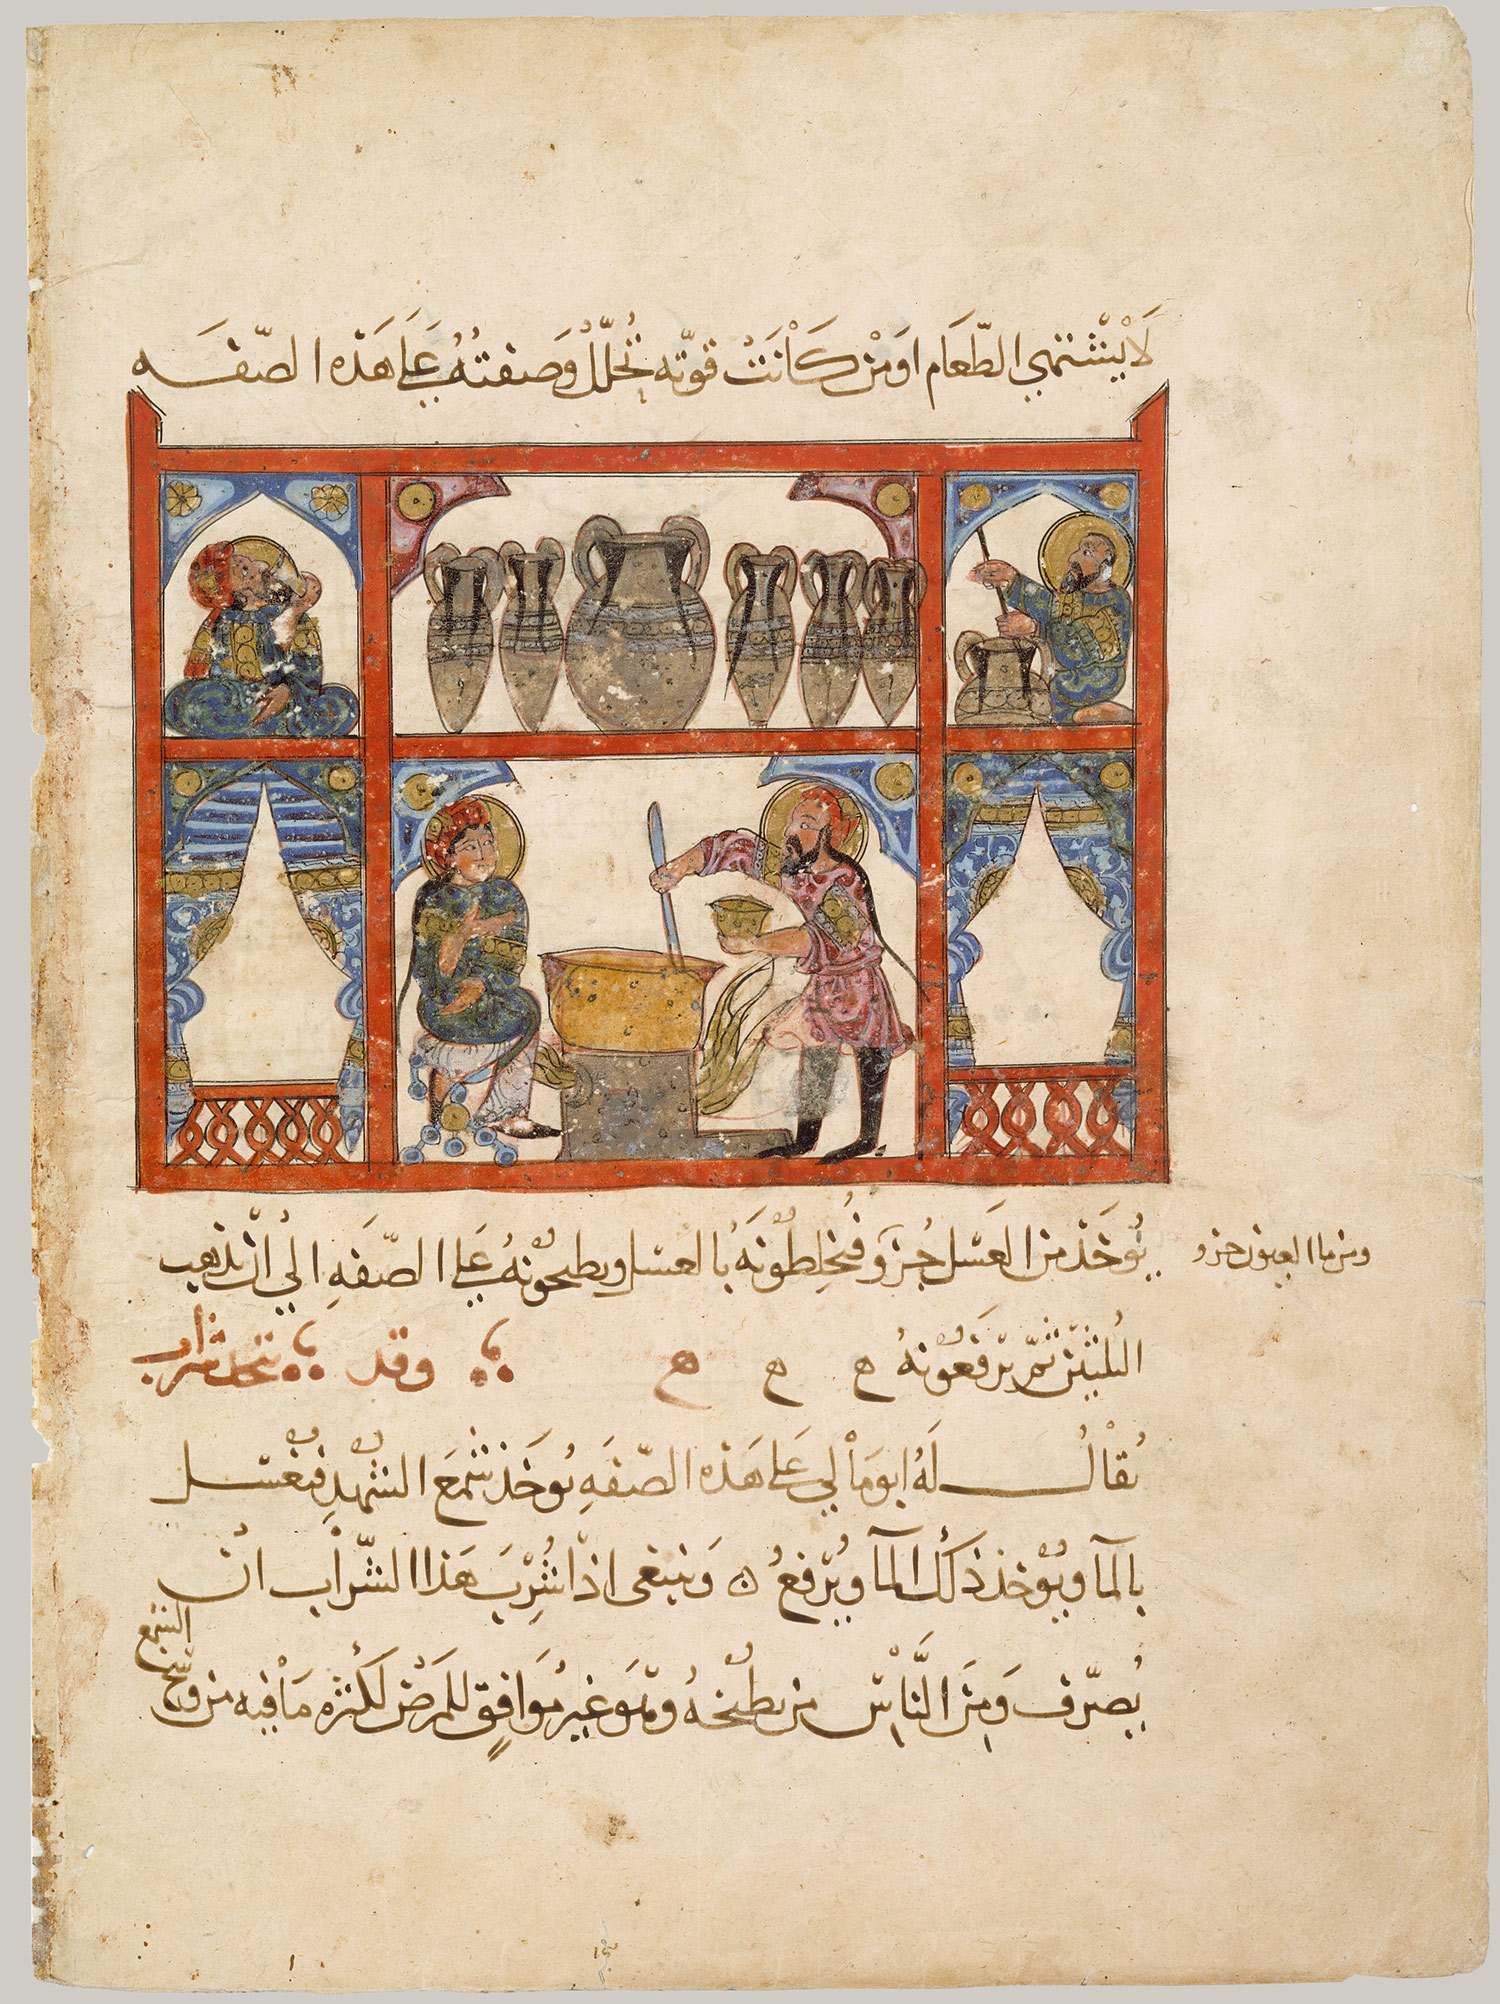 لَا يَشْتَهِي الطَّعَام اَوْ مَنْ كَانَتْ قُوَّته تُحَلَّلُ وَصفتُهُ عَلَى هَذِهِ الصّفَه
يُؤخَذ مِنَ العَسَل جُزو فَيُخلِطُونَهُ بِالعَسَل ويطبخُونهُ عَلَى الصّفَهِ اِلَى اَنْ يذهب
ومن ماء العيون جزو
الثلثين ثمّ يرْفَعُونهُ ه ه ه وقد يتخذ شراب
يُقَالُ لَهُ ابومَالي عَلى هَذِه الصّفَهِ يُوخَذ شَمعَ الشهْدِ فيغْسَل
بالمآ ويُؤخذ ذلكَ المآ ويُرْفعُ ه وَينبغى اذا شُرِبَ هَذَا الشّرَاب انْ
يُصرّف وَمِنَ النَّاسِ من يطبُخهُ وهُوَ غيرُ مُوَافِقٍ للمَرَضَى لكَثرَهِ مَا فِيهِ من وسَخ
الشمع